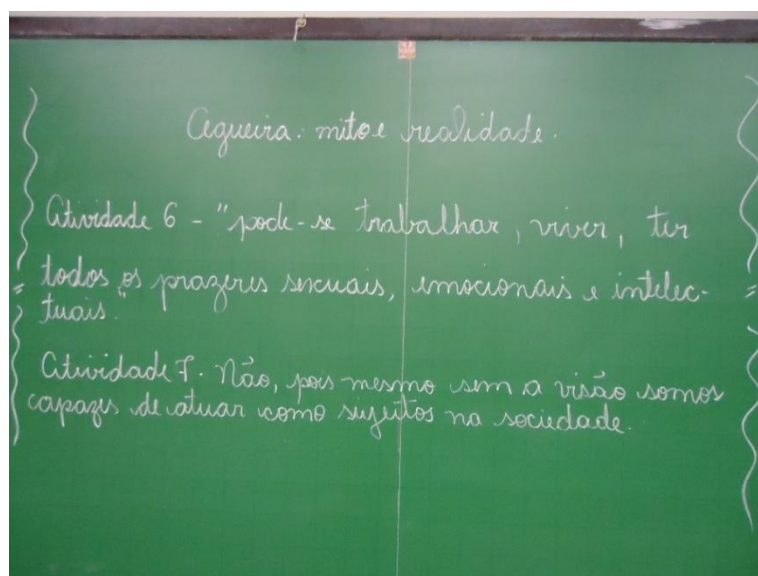 Cegueira: mito e realidade.
Atividade 6 - "pode-se trabalhar, viver, ter
todos os prazeres sexuais, emocionais e intelec-
tuais."
Atividade 7. Não, pois mesmo sem a visão somos
capazes de atuar como sujeitos na sociedade.